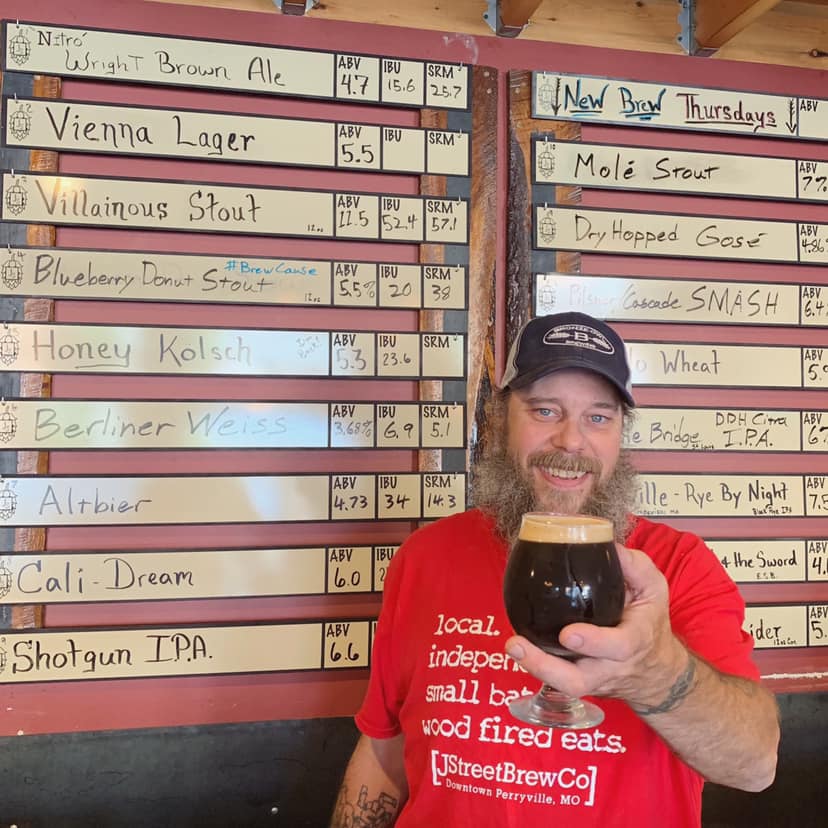 Nitro
Wright Brown Ale ABV 4.7 IBU 15.6 SRM 25.7
Vienna Lager ABV 5.5 IBU SRM
Villainous Stout 12oz ABV 11.5 IBU 52.4 SRM 57.1
Blueberry Donut Stout #BrewCause 12oz ABV 5.5% IBU 20 SRM 38
Honey Kolsch ABV 5.3 IBU 23.6
Berliner Weiss ABV 3.68% IBU 6.9 SRM 5.1
Altbier ABV 4.73 IBU 34 SRM 14.3
Cali-Dream ABV 6.0 IBU
Shotgun I.P.A. ABV 6.6
New Brew Thursdays ABV
Molé Stout ABV 7%
Dry Hopped Gosé ABV 4.86
Pilsner/Cascade SMASH ABV 6.4
Wheat ABV 5.9
Bridge DDH Citra I.P.A. ABV
ille - Rye By Night Black Rye IPA ABV 7.5
& the Sword E.S.B. ABV
ider 12oz Can ABV 5.
B
local.
indepen
small bat
wood fired eats.
[JStreetBrewCo]
Downtown Perryville, MO